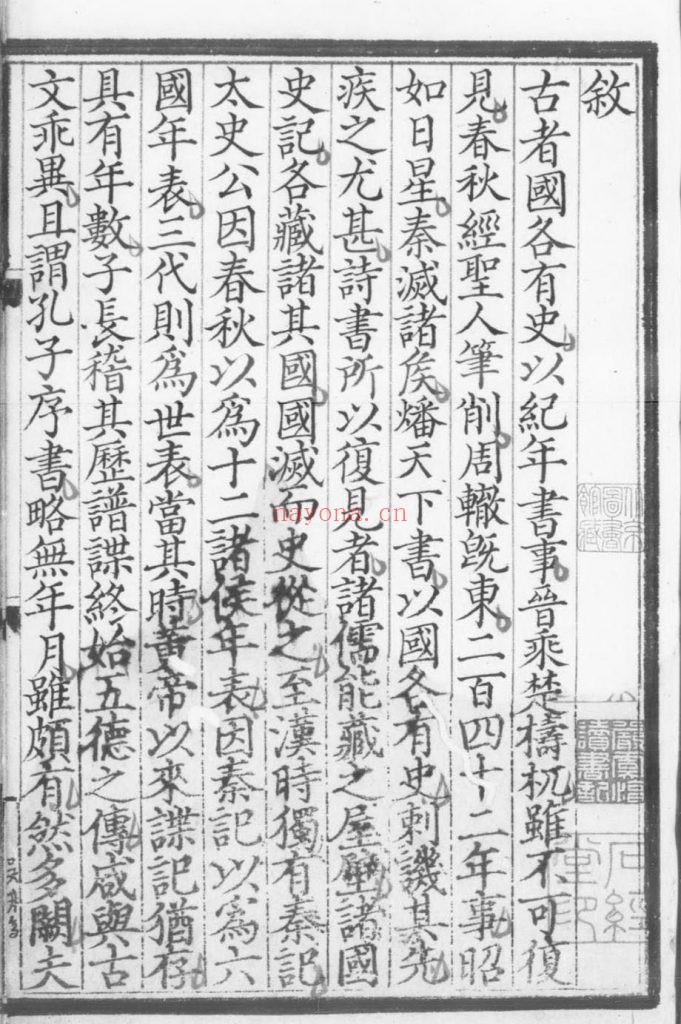 敘
古者國各有史以紀年書事晉乘楚檮杌雖不可復
見春秋經聖人筆削周轍既東二百四十二年事昭
如日星秦滅諸侯燔天下書以國各有史刺譏其先
疾之尤甚詩書所以復見者諸儒能藏之屋壁諸國
史記各藏諸其國國滅而史從之至漢時獨有秦記
太史公因春秋以爲十二諸侯年表因秦記以爲六
國年表三代則爲世表當其時黃帝以來諜記猶存
具有年數子長稽其歷譜諜終始五德之傳咸與古
文乖異且謂孔子序書略無年月雖頗有然多闕夫
nayona.cn